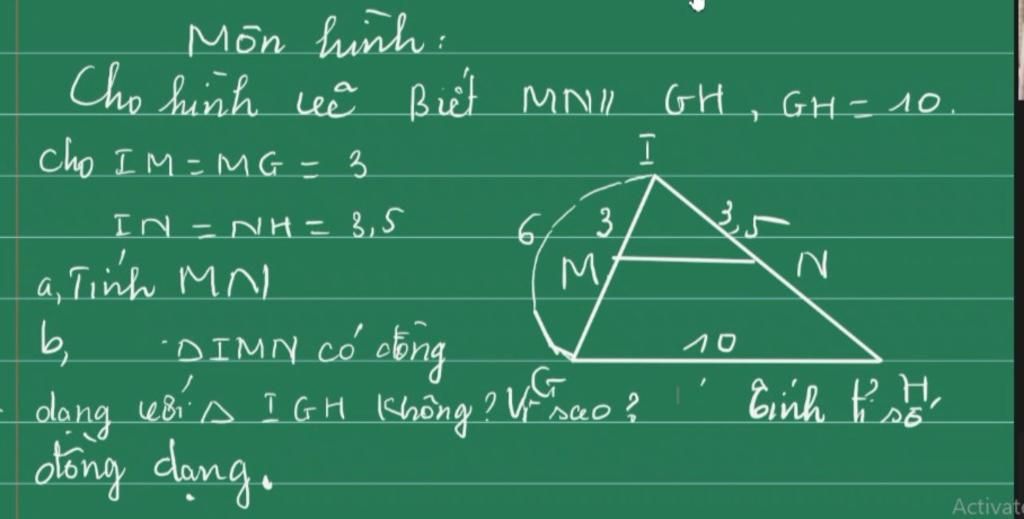 Môn hình:
Cho hình vẽ Biết MN// GH, GH = 10.
Cho IM = MG = 3
IN = NH = 3,5
a, Tính MN
b, ΔIMN có đồng
dạng với Δ IGH không? Vì sao? Tính tỉ số
đồng dạng.
I
6
3
3,5
M
N
10
G
H
Activat